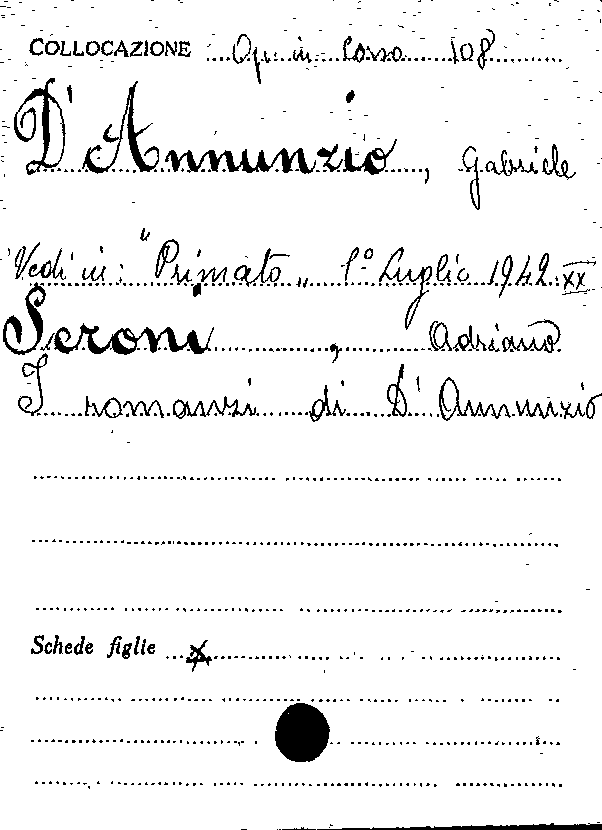 COLLOCAZIONE Op. in Corso 108
D'Annunzio, Gabriele
Vedi in: "Primato„ 1° Luglio 1942 XX
Seroni, Adriano
I romanzi di D'Annunzio
Schede figlie x